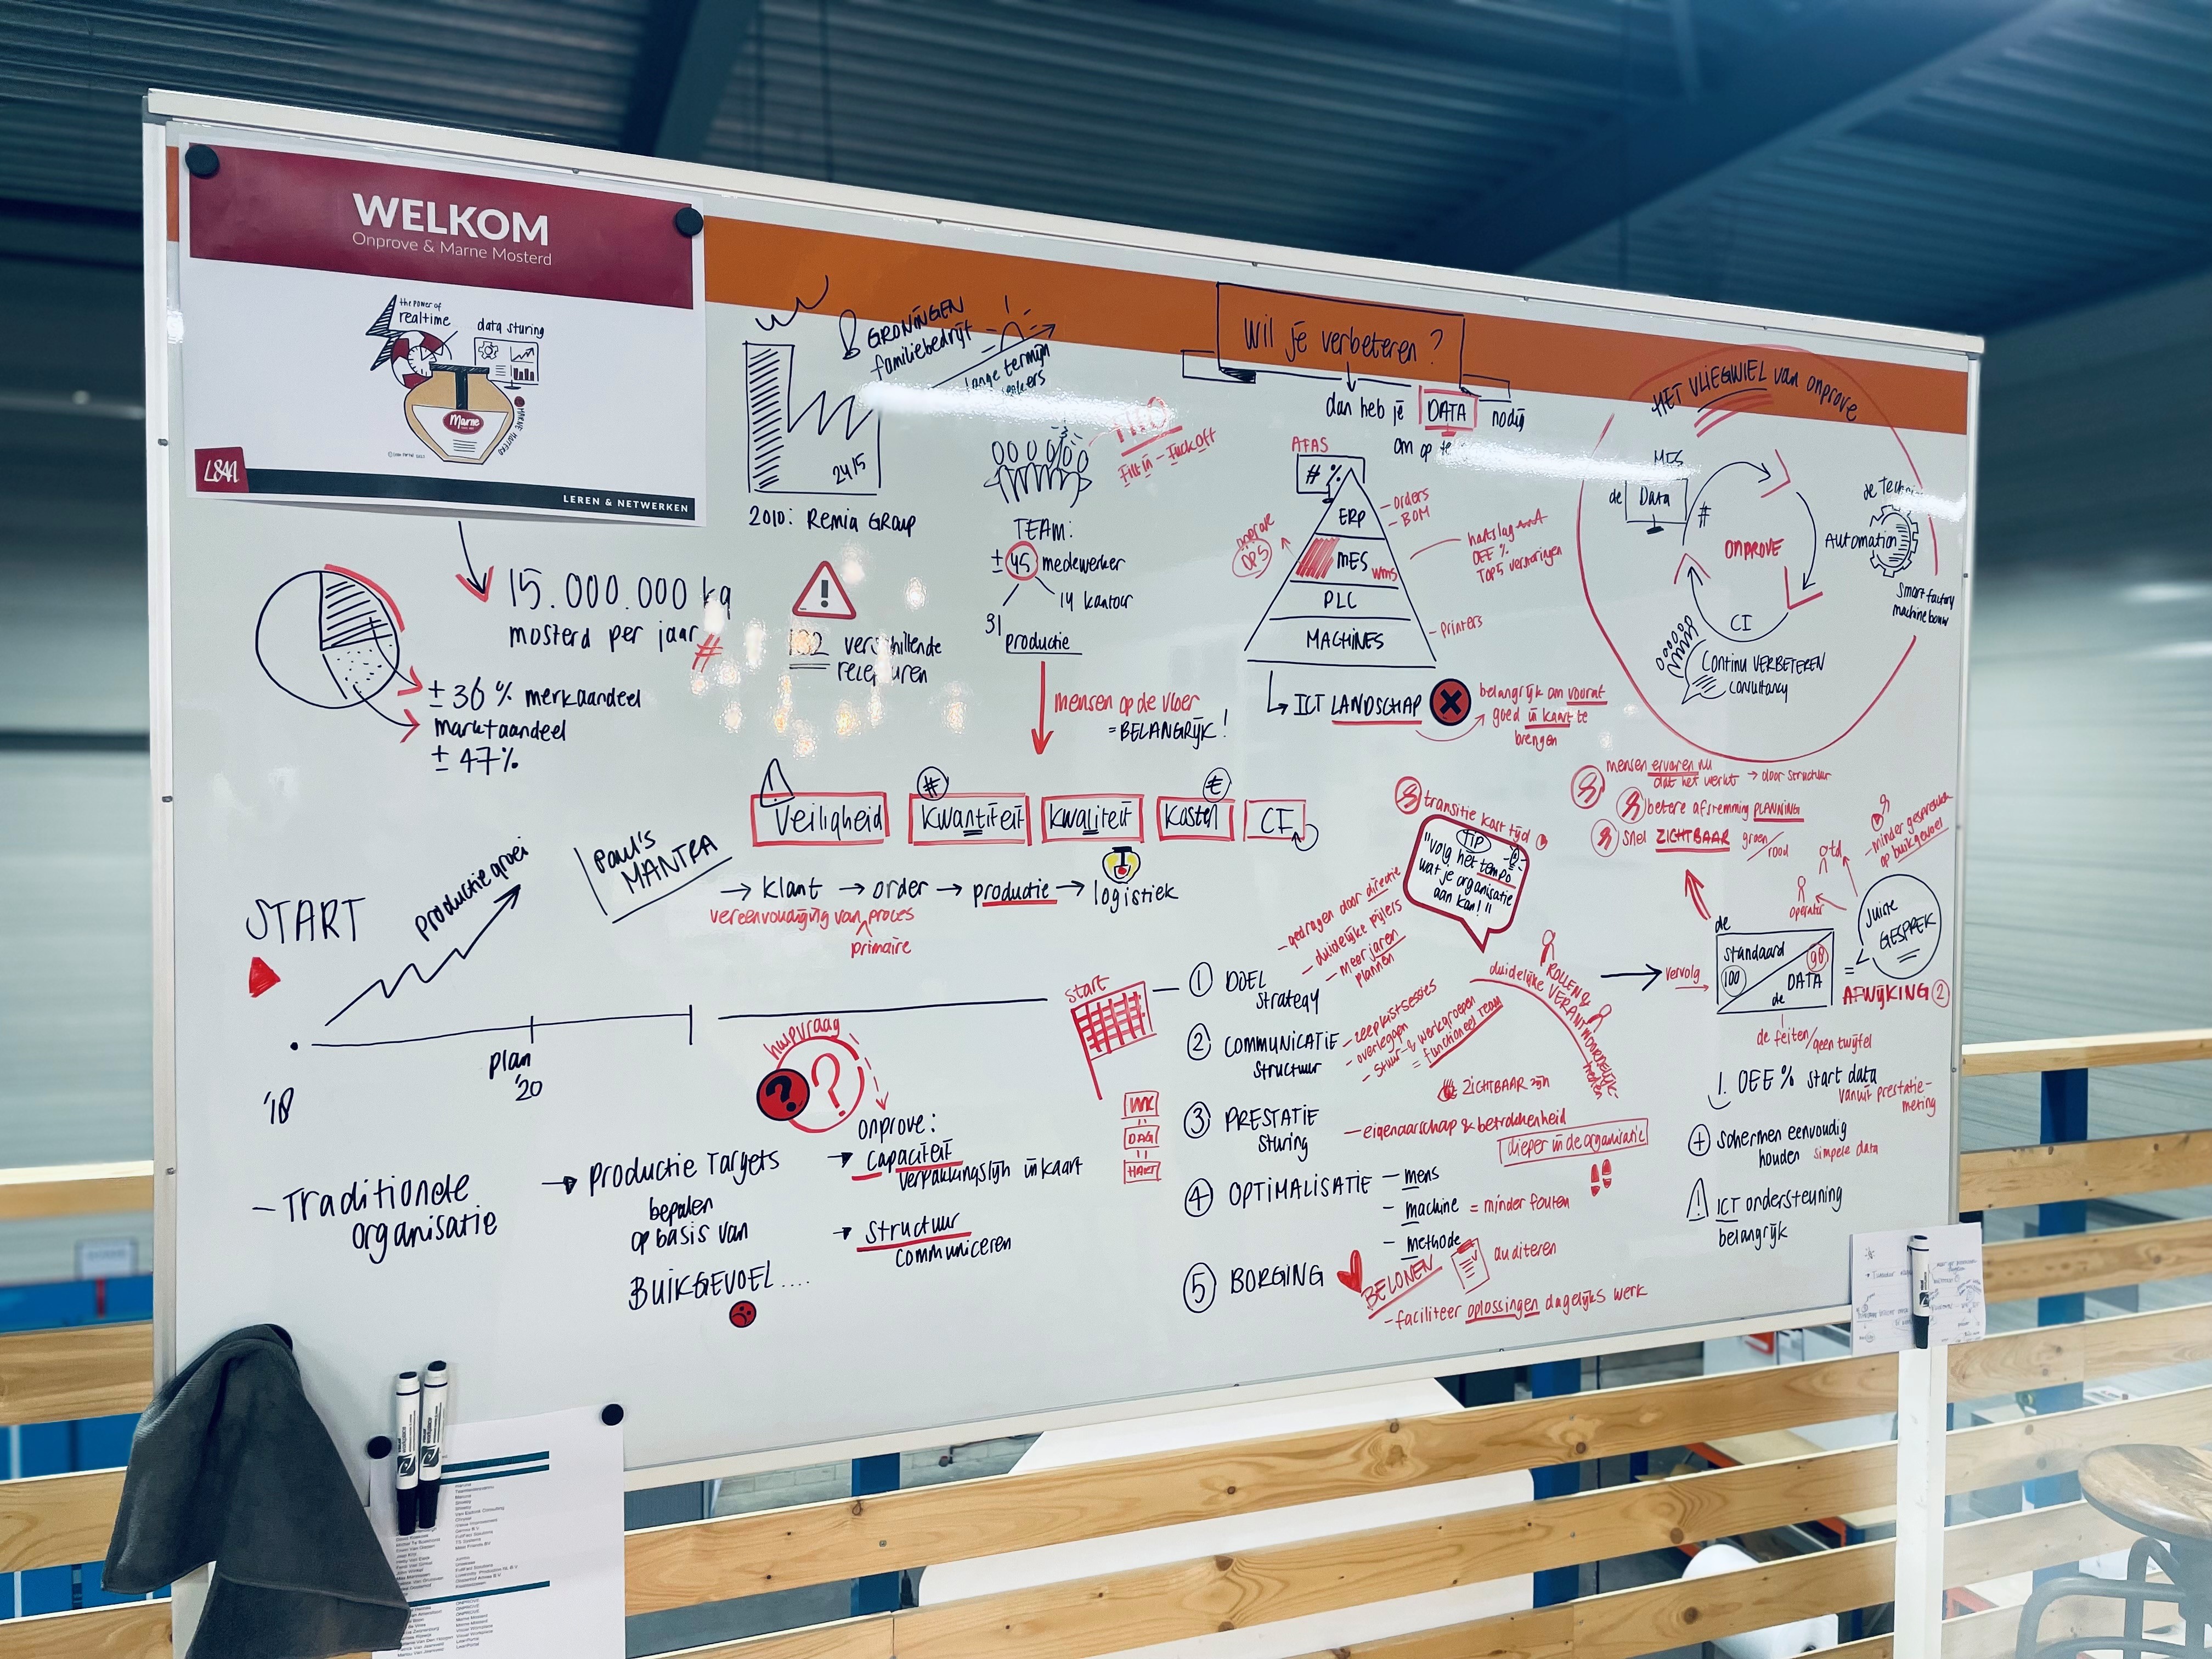 WELKOM
Onprove & Marne Mosterd
the power of
realtime
data sturing
Marne
MARNE MOSTERD
L&N
LEREN & NETWERKEN
GRONINGEN
familiebedrijf
lange termijn
24/5
2010: Remia Group
FIFO
Fit in - Fuck off
TEAM:
± 45 medewerker
14 kantoor
31
productie
mensen op de vloer
= BELANGRIJK!
15.000.000 kg
mosterd per jaar
#
± 36% merkaandeel
marktaandeel
± 47%
!
verschillende
recepturen
Wil je verbeteren?
dan heb je DATA nodig
om op te
AFAS
# %
ERP
- orders
- BOM
MES
wms
OEE %
TOP 5 verstoringen
PLC
MACHINES
- printers
onprove
OP 5
ICT LANDSCHAP
belangrijk om vooraf
goed in kaart te
brengen
HET VLIEGWIEL van onprove
MES
de Data
#
ONPROVE
Automation
Smart factory
machinebouw
CI
Continu VERBETEREN
consultancy
Paul's
MANTRA
!
Veiligheid
#
Kwantiteit
Kwaliteit
€
Kosten
CI
→ klant → order → productie → logistiek
vereenvoudiging van proces
primaire
START
productiegroei
'18
plan
'20
hulpvraag
? ?
- Traditionele
organisatie
→ Productie Targets
bepalen
op basis van
BUIKGEVOEL....
onprove:
→ capaciteit
verpakkingslijn in kaart
→ structuur
communiceren
start
WK
DAG
transitie kost tijd
TIP
"Volg het tempo
wat je organisatie
aan kan!"
1 DOEL
strategy
- gedragen door directie
- duidelijke pijlers
- meer jaren
plannen
2 COMMUNICATIE
structuur
- zeepkistsessies
- overleggen
- stuur- & werkgroepen
= functioneel team
duidelijke ROLLEN &
VERANTWOORDELIJK-
heden
ZICHTBAAR zijn
3 PRESTATIE
sturing
- eigenaarschap & betrokkenheid
dieper in de organisatie
4 OPTIMALISATIE
- mens
- machine = minder fouten
- methode
5 BORGING
BELONEN
auditeren
- faciliteer oplossingen dagelijks werk
mensen ervaren nu
dat het werkt → door structuur
betere afstemming PLANNING
snel ZICHTBAAR groen/
rood
- minder gesprekken
op buikgevoel
td
operator
vervolg
de
standaard
100
90
DATA
de
=
Juiste
GESPREK
AFWIJKING 2
de feiten/geen twijfel
1. OEE % start data
vanuit prestatie-
meting
+ schermen eenvoudig
houden simpele data
! ICT ondersteuning
belangrijk